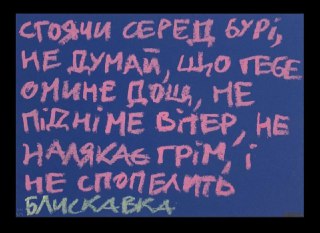 СТОЯЧИ СЕРЕД БУРІ,
НЕ ДУМАЙ, ЩО ТЕБЕ
ОМИНЕ ДОЩ, НЕ
ПІДНІМЕ ВІТЕР, НЕ
НАЛЯКАЄ ГРІМ, І
НЕ СПОПЕЛИТЬ
БЛИСКАВКА